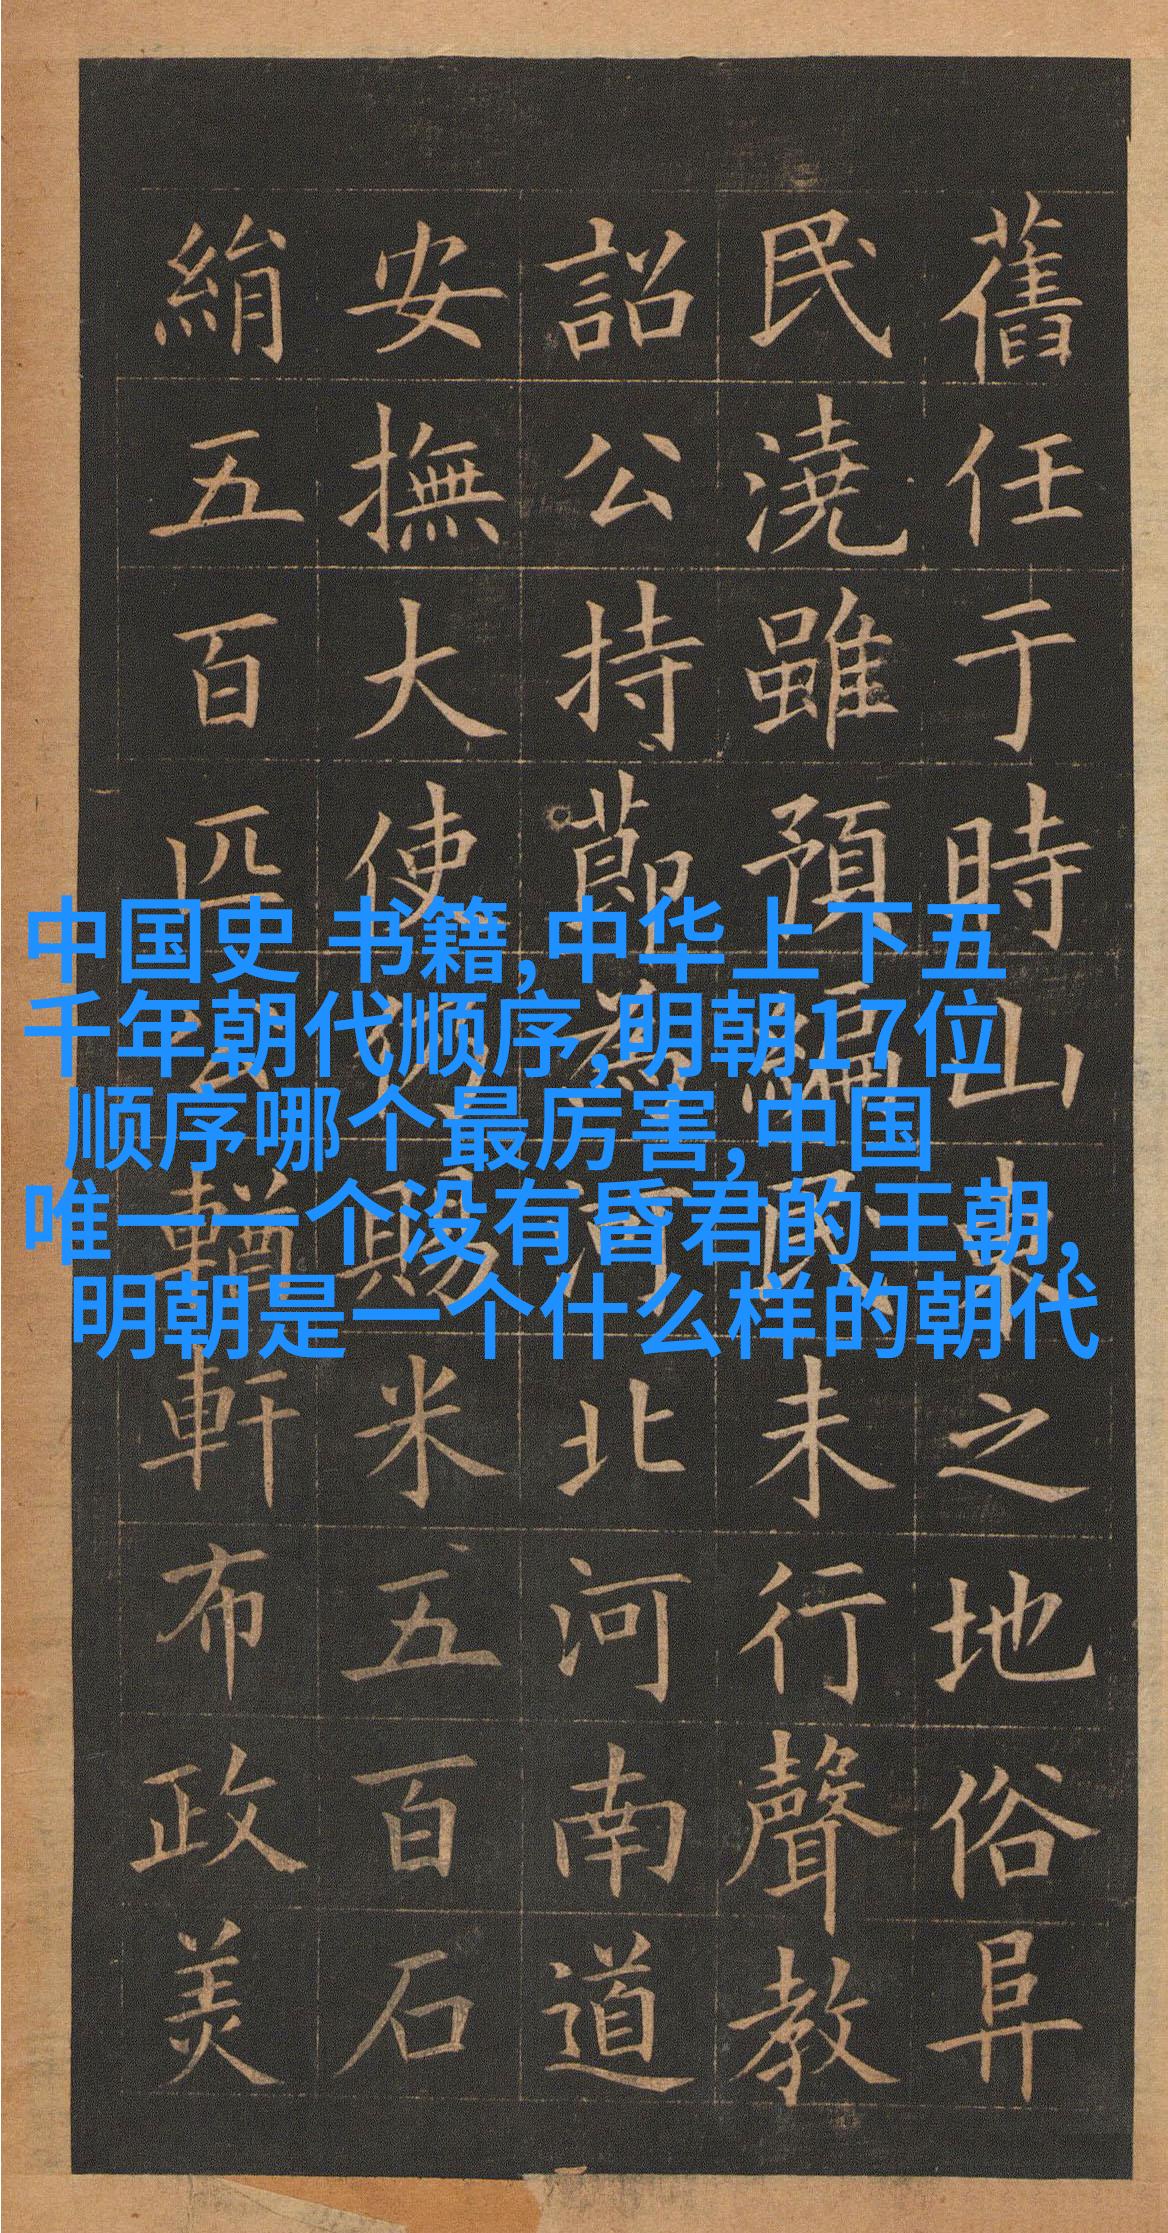 舊任于時山東之地俗阜
民澆雖預編民未行聲教
詔公持節為河北河南道
安撫大使仍賜米五百石
絹五百匹輶軒布政美
中国史 书籍,中华上下五
千年朝代顺序,明朝17位
顺序哪个最厉害,中国
唯一一个没有昏君的王朝,
明朝是一个什么样的朝代